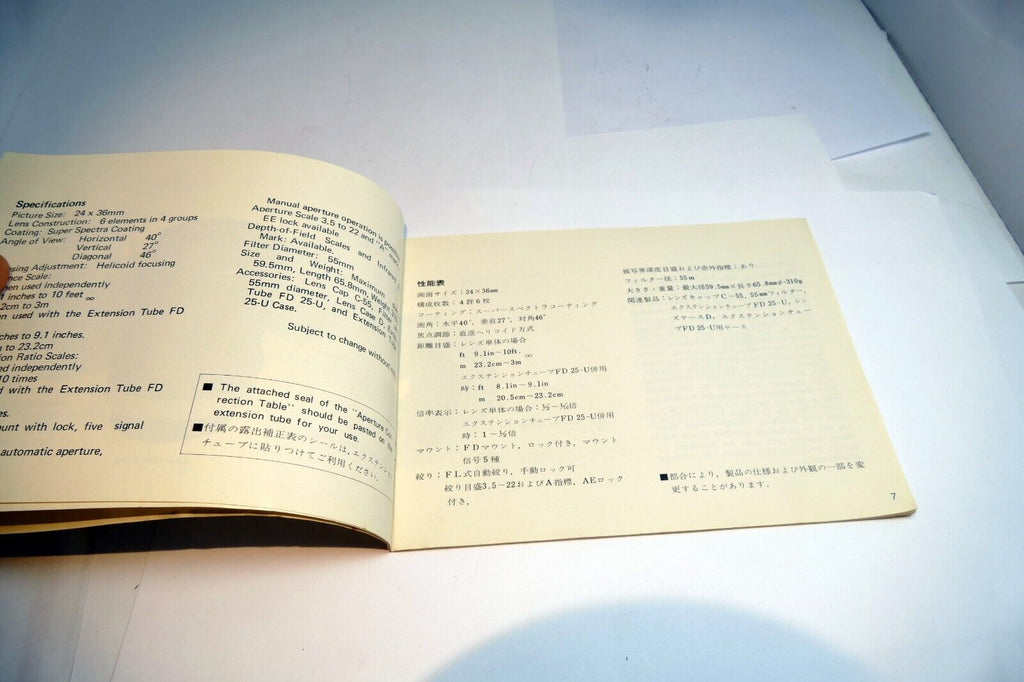 Specifications
Picture Size: 24 x 36mm
Lens Construction: 6 elements in 4 groups
Coating: Super Spectra Coating
Angle of View: Horizontal 40°
Vertical 27°
Diagonal 46°
sing Adjustment: Helicoid focusing
nce Scale:
en used independently
inches to 10 feet ∞
2cm to 3m
n used with the Extension Tube FD
ches to 9.1 inches.
to 23.2cm
ion Ratio Scales:
ed independently
10 times
d with the Extension Tube FD
es.
unt with lock, five signal
automatic aperture,
Manual aperture operation is
Aperture Scale 3.5 to 22 and "A"
EE lock available
Depth-of-Field Scales and
Mark: Available.
Filter Diameter: 55mm
Size and Weight: Maximum
59.5mm, Length 65.8mm, Weight
Accessories: Lens Cap C-55, Filter
55mm diameter, Lens Case D,
Tube FD 25-U, and Extension Tube
25-U Case.
Subject to change without
■ The attached seal of the "Aperture
rection Table" should be pasted on
extension tube for your use.
■付属の露出補正表のシールは、エクステンション
チューブに貼りつけてご利用ください。
性能表
画面サイズ：24×36mm
構成枚数：4群6枚
コーティング：スーパースペクトラコーティング
画角：水平40°，垂直27°，対角46°
焦点調節：直進ヘリコイド方式
距離目盛：レンズ単体の場合
ft 9.1in〜10ft. ∞
m 23.2cm〜3m
エクステンションチューブFD 25-U併用
時：ft 8.1in〜9.1in
m 20.5cm〜23.2cm
倍率表示：レンズ単体の場合：
エクステンションチューブFD 25-U併用
時：1〜½倍
マウント：FDマウント，ロック付き，マウント
信号5種
絞り：FL式自動絞り，手動ロック可
絞り目盛3.5〜22およびA指標，AEロック
付き，
被写界深度目盛および赤外指標：あり
フィルター径：55m
大きさ・重量：最大径59.5mm×長さ65.8mm 310g
関連製品：レンズキャップC-55，55mmフィルター，
エクステンションチューブFD 25-U，レン
ズケースD，エクステンションチュー
ブFD 25-U用ケース
■都合により，製品の仕様および外観の一部を変
更することがあります．
7